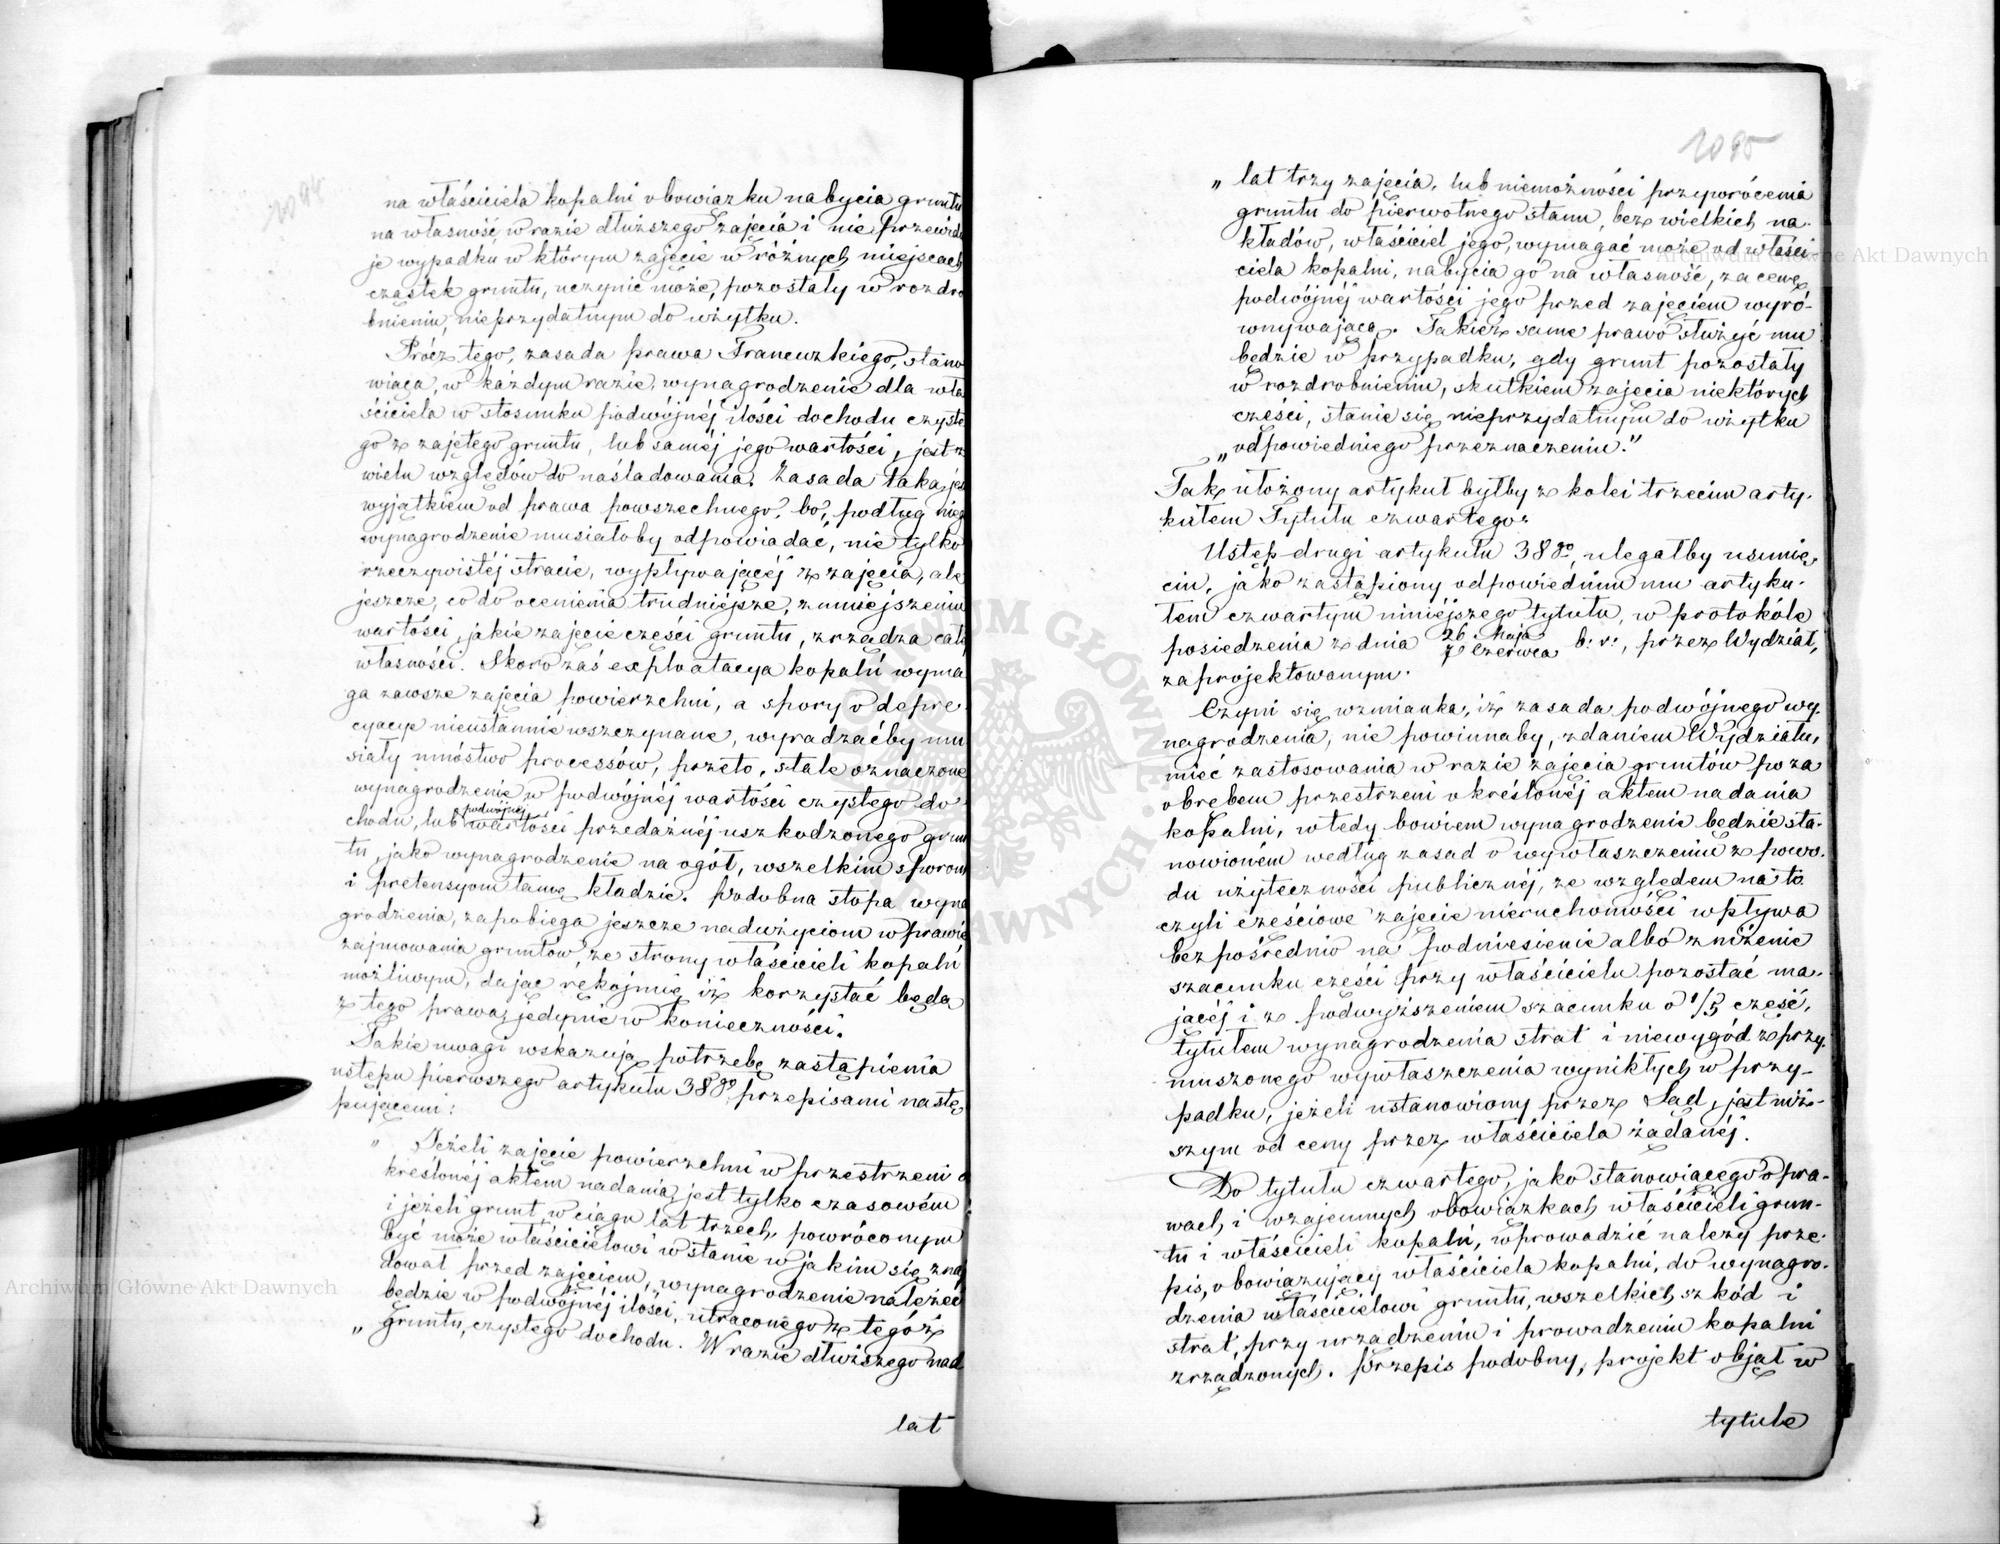 na właściciela kopalni obowiązku nabycia gruntu
na własność, w razie dłuższego zajęcia i nie przewidu
je wypadku w którym zajęcie w różnych miejscach
cząstek gruntu, uczynić może, pozostały w rozdro
bnieniu, nieprzydatnym do użytku.
Prócz tego, zasada prawa Francuzkiego, stano
wiąca, w każdym razie, wynagrodzenie dla wła
ściciela w stosunku podwójnéj ilości dochodu czyste
go z zajętego gruntu, lub saméj jego wartości, jest z
wielu względów do naśladowania. Zasada taka, jes
wyjątkiem od prawa powszechnego, bo, podług nieg
wynagrodzenie musiałoby odpowiadać, nie tylko
rzeczywistéj stracie, wypływającéj z zajęcia, ale
jeszcze, co do ocenienia trudniejsze, zmniejszeniu
wartości, jakie zajęcie części gruntu, zrządza całé
własności. Skoro zaś exploatacya kopalń wyma
ga zawsze zajęcia powierzchni, a spory o depre
cyacye nieustannie wszczynane, wyradzaćby mu
siały mnóstwo processów, przeto, stale oznaczone
wynagrodzenie w podwójnéj wartości czystego do
chodu, lub podwójnéj wartości przedażnéj uszkodzonego grun
tu, jako wynagrodzenie na ogół, wszelkim sporom
i pretensyom tamę kładzie. Podobna stopa wyna
grodzenia, zapobiega jeszcze nadużyciom w prawie
zajmowania gruntów ze strony właścicieli kopalń
możliwym, dając rękojmię iż korzystać będą
z tego prawa, jedynie w konieczności.
Takie uwagi wskazują potrzebę zastąpienia
ustępu pierwszego artykułu 38go, przepisami nastę
pującemi:
„ Jeżeli zajęcie powierzchni w przestrzeni o
kreślonéj aktem nadania, jest tylko czasowém
i jeżeli grunt, w ciągu lat trzech, powróconym
być może właścicielowi w stanie w jakim się znaj
dował przed zajęciem, wynagrodzenie należeć
będzie w podwójnéj ilości, utraconego z tegóż
„ gruntu, czystego dochodu. W razie dłuższego nad
lat
1095
„ lat trzy zajęcia, lub niemożności przywrócenia
gruntu do pierwotnego stanu, bez wielkich na-
kładów, właściciel jego, wymagać może od właści-
ciela kopalni, nabycia go na własność, za cenę
podwójnéj wartości jego przed zajęciem wyró-
wnywającą. Takież same prawo służyć mu
będzie w przypadku, gdy grunt pozostały
w rozdrobnieniu, skutkiem zajęcia niektórych
części, stanie się nieprzydatnym do użytku
„ odpowiedniego przeznaczeniu."
Tak ułożony artykuł byłby z kolei trzecim arty-
kułem Tytułu czwartego.
Ustęp drugi artykułu 38go, ulegałby usunię-
ciu, jako zastąpiony odpowiednim mu artyku-
łem czwartym niniejszego tytułu, w protokóle
posiedzenia z dnia 26 Maja / 7 Czerwca b. r., przez Wydział,
zaprojektowanym.
Czyni się wzmianka, iż zasada podwójnego wy-
nagrodzenia, nie powinnaby, zdaniem Wydziału,
mieć zastosowania w razie zajęcia gruntów poza
obrębem przestrzeni określonéj aktem nadania
kopalni, wtedy bowiem wynagrodzenie będzie sta-
nowioném według zasad o wywłaszczeniu z powo-
du użyteczności publicznéj, ze względem na to
czyli częściowe zajęcie nieruchomości wpływa
bezpośrednio na podniesienie albo zniżenie
szacunku części przy właścicielu pozostać ma-
jącéj i z podwyższeniem szacunku o 1/5 część,
tytułem wynagrodzenia strat i niewygód z przy-
muszonego wywłaszczenia wynikłych w przy-
padku, jeżeli ustanowiony przez Sąd, jest niż-
szym od ceny przez właściciela żądanéj.
Do tytułu czwartego, jako stanowiącego o pra-
wach i wzajemnych obowiązkach właścicieli grun-
tu i właścicieli kopalń, wprowadzić należy prze-
pis, obowiązujący właściciela kopalni, do wynagro-
dzenia właścicielowi gruntu, wszelkich szkód i
strat, przy urządzeniu i prowadzeniu kopalni
zrządzonych. Przepis podobny, projekt objął w
tytule
Archiwum Główne Akt Dawnych